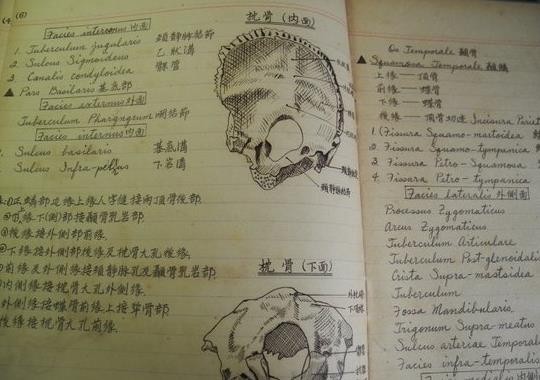 (6)
Facies internus 内面
1. Tuberculum jugularis 頚静脉結節
2. Sulcus Sigmoideus 乙狀溝
3. Canalis condyloidea 髁管
▲ Pars Basilaris 基底部
Facies externus 外面
Tuberculum Pharyngeum 咽結節
Facies internus 内面
Sulcus basilaris 基底溝
Sulcus Infra-petosus 下岩溝
枕骨 (内面)
頚静脉結節
正鱗部近緣上緣人字縫接兩頂骨後部
下側部接顳骨乳岩部
後緣接外側部前緣
下緣接外側部後緣及枕骨大孔後緣
前緣及外側緣接頚静脉孔及顳骨乳岩部
内側緣接枕骨大孔外側緣
外側緣接蝶骨前緣上接犂骨部
後緣接枕骨大孔前緣
枕骨 (下面)
Os Temporale 顳骨
▲ Squamosa Temporale 顳鱗
上緣 — 頂骨
前緣 — 蝶骨
下緣 — 蝶骨
後緣 — 頂骨切迹 Incisura Pariet
1. (Fissura Squamo-mastoidea
2. Fissura Squamo-tympanica
3. Fissura Petro-Squamosa
4. Fissura Petro-tympanica
Facies lateralis 外側面
Processus Zygomaticus
Arcus Zygomaticus
Tuberculum Articulare
Tuberculum Post-glenoidalis
Crista Supra-mastoidea
Tuberculum
Fossa Mandibularis
Trigonum Supra-meatus
Sulcus arteriae Temporal
Facies infra-temporalis